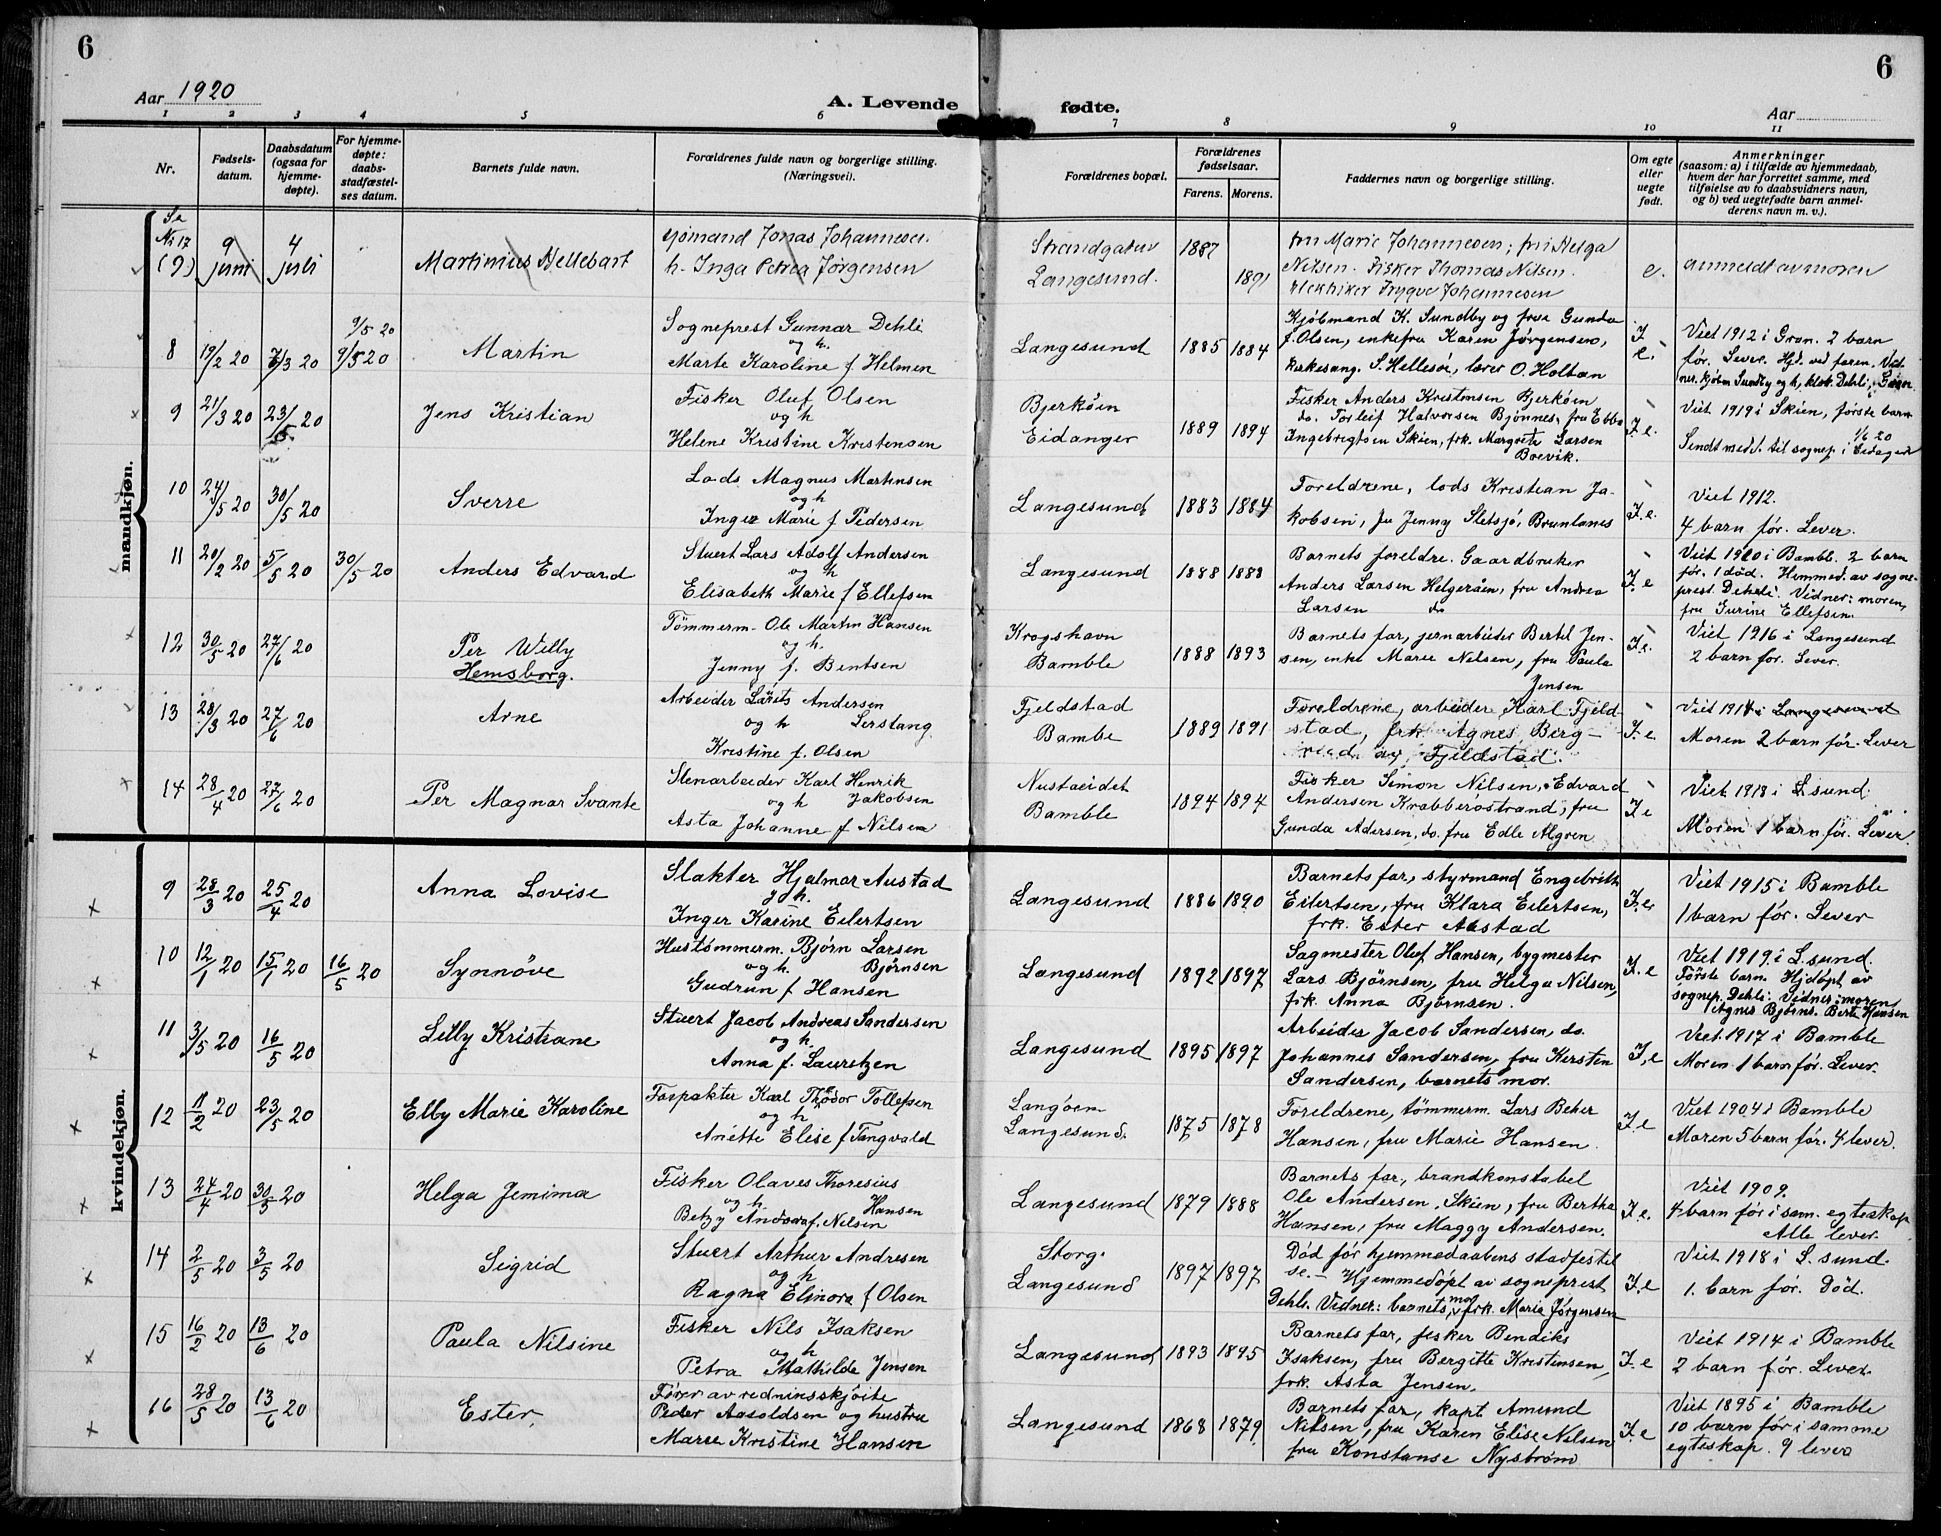 6
6
Aar 1920
A. Levende
fødte.
Aar
1 2 3 4 5 6 7 8 9 10 11
Nr.
Fødsels-
datum.
Daabsdatum
(ogsaa for
hjemme-
døpte).
For hjemme-
døpte:
daabs-
stadfæstel-
ses datum.
Barnets fulde navn.
Forældrenes fulde navn og borgerlige stilling.
(Næringsvei).
Forældrenes bopæl.
Forældrenes
fødselsaar.
Farens. Morens.
Faddernes navn og borgerlige stilling.
Om egte
eller
uegte
født.
Anmerkninger
(saasom: a) i tilfælde av hjemmedaab,
hvem der har forrettet samme, med
tilføielse av to daabsvidners navn,
og b) ved uegtefødte barn anmel-
derens navn m. v.).
mandkjøn.
Se
Nr 17
(9)
9
juni
4
juli
Martinius Hellebart
Sjömand Jonas Johannesen
h. Inga Petrea Jørgensen
Strandgaten
Langesund.
1887
1891
fru Marie Johannesen; fru Helga
Nilsen. Fisker Thomas Nilsen.
elektriker Trygve Johannesen
e.
anmeldt av moren
8
19/2 20
7/3 20
9/5 20
9/5 20
Martin
Sogneprest Gunnar Dehli
og h.
Marte Karoline f Helmen
Langesund
1885 1884
Kjöbmand K. Sundby og frue Gunda
f. Olsen, enkefru Karen Jørgensen,
kirkesang. S. Hellesö, lærer O. Holtan
F
e.
Viet 1912 i Gran. 2 barn
før. Lever. Hjd. ved faren. Vid-
ner. kjøbm Sundby og h, klok. Dehli, Gran.
9
21/3 20
23/5 20
Jens Kristian
Fisker Oluf Olsen
og h
Helene Kristine Kristensen
Bjerköen
Eidanger
1889 1894
Fisker Anders Kristensen Bjerköen
do. Torleif Halvorsen Bjönnes, fru Ebba
Ingebrigtsen Skien, frk. Margrete Larsen
Brevik.
F. e.
Viet 1919 i Skien, første barn
1/6 20
Sendt medd. til sognep. i Eidanger
10
24/5 20
30/5 20
Sverre
Lods Magnus Martinsen
og h
Inger Marie f Pedersen
Langesund
1883 1884
Foreldrene, lods Kristian Ja-
kobsen, fru Jenny Sletsjö, Brunlanes
F. e.
Viet 1912.
4 barn før. Lever.
11
20/2 20
5/5 20
30/5 20
Anders Edvard
Stuert Lars Adolf Andersen
og h
Elisabeth Marie f Ellefsen
Langesund
1888 1888
Barnets foreldre. Gaardbruker
Anders Larsen Helgeråen, fru Andrea
Larsen do
F. e
Viet 1910 i Bamble. 2 barn
før. 1 død. Hemmed. av sogne-
prest Dehli. Vidner: moren,
fru Gurine Ellefsen.
12
30/5 20
27/6 20
Per Willy
Hemsborg.
Tömmerm. Ole Martin Hansen
og h.
Jenny f. Bentsen
Krogshavn
Bamble
1888 1893
Barnets far, jernarbeider Bertel Jen-
sen, enke Marie Nilsen, fru Paula
Jensen
F. e.
Viet 1916 i Langesund
2 barn før. Lever.
13
28/3 20
27/6 20
Arne
Arbeider Lårits Andersen
og h Lerstang
Kristine f. Olsen
Fjeldstad
Bambe
1889 1891
Foreldrene, arbeider Karl Fjeld-
stad, frk. Agnes Berg-
av Fjeldstad.
F. e
Viet 1914 i Langesund
Moren 2 barn før. Lever
14
28/4 20
27/6 20
Per Magnar Svante
Stenarbeider Karl Henrik
og h Jakobsen
Asta Johanne f Nilsen
Nustaeidet
Bamble
1894 1894
Fisker Simon Nilsen, Edvard
Andersen Krabberöstrand, fru
Gunda Adersen, do. fru Edle Algren
F. e
Viet 1918 i L.sund.
Moren 1 barn før. Lever.
kvindekjøn.
9
28/3 20
25/4 20
Anna Lovise
Slakter Hjalmar Austad
og h.
Inger Karine Eilertsen
Langesund
1886 1890
Barnets far, styrmand Engebrith
Eilertsen, fru Klara Eilertsen,
frk. Ester Austad
F. e.
Viet 1915 i Bamble
1 barn før. Lever
10
12/1 20
15/1 20
16/5 20
Synnöve
Hustømmerm. Björn Larsen
og h. Björnsen
Gudrun f Hansen
Langesund
1892 1897
Sagmester Oluf Hansen, bygmester
Lars Bjørnsen, fru Helga Nilsen,
frk. Anna Bjørnsen.
F. e
Viet 1919 i L.sund.
Første barn. Hjdöpt av
sognep. Dehli. Vidner: moren,
Agnes Bjørns. Berte Hansen
11
3/5 20
16/5 20
Lilly Kristiane
Stuert Jacob Andreas Sandersen
og h
Anna f. Lauretzen
Langesund
1895 1897
Arbeider Jacob Sandersen, do.
Johannes Sandersen, fru Kersten
Sandersen, barnets mor.
F. e
Viet 1917 i Bamble
Moren 1 barn før. Lever.
12
11/2 20
23/5 20
Elby Marie Karoline
Forpakter Karl Theodor Tollefsen
og h
Anette Elise f Tangvald
Langøen
Langesund.
1875 1878
Foreldrene, tömmerm. Lars Beher
Hansen, fru Marie Hansen.
F. e
Viet 1904 i Bamble
Moren 5 barn før. 4 lever.
13
24/4 20
30/5 20
Helga Jemima
Fisker Olaves Thoresius
og h Hansen
Betzy Andrea f. Nilsen
Langesund
1879 1888
Barnets far, brandkonstabel
Ole Andersen, Skien, fru Bertha
Hansen, fru Maggy Andersen.
F. e.
Viet 1909.
4 barn før i sam. egteskap
Alle lever.
14
2/5 20
3/5 20
Sigrid
Stuert Arthur Andresen
og h
Ragna Elinora f Olsen
Storg.
Langesund
1897 1897
Død før hjemmedaabens stadfestel
se. – Hjemmedöpt av sogneprest
Dehli. Vidner: barnets mor, frk. Maria Jørgensen
F. e
Viet 1918 i L.sund.
1. barn før. Død.
15
16/2 20
13/6 20
Paula Nilsine
Fisker Nils Isaksen
og h
Petra Mathilde Jensen
Langesund
1893 1895
Barnets far, fisker Bendiks
Isaksen, fru Bergitte Kristensen,
frk. Asta Jensen.
F. e
Viet 1914 i Bamble
2 barn før. Lever.
16
28/5 20
13/6 20
Ester.
Fører av redninsskjöite
Peder Aasoldsen og hustru
Marie Kristine Hansen
Langesund
1868 1879
Barnets far, kapt Amund
Nilsen, fru Karen Elise Nilsen
fru Konstanse Nystrøm
F. e
Viet 1895 i Bamble
10 barn før i samme
egteskap. 9 lever